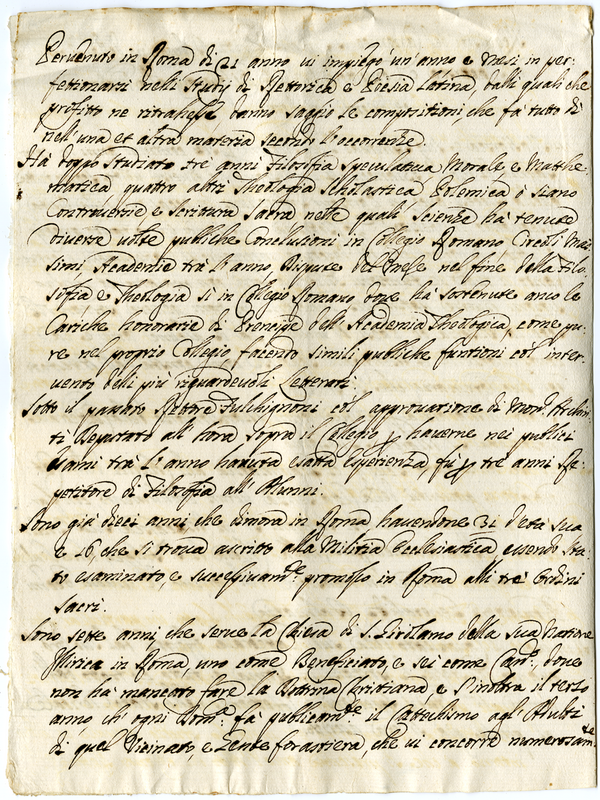 Pervenuto in Roma di 21 anno vi impiegò un'anno e mesi in per-
fettionarsi nelli studij di Rettorica e Poesia Latina, dalli quali che
profitto ne ritrahesse danno saggio le compositioni, che fà tutto dì
nell'una et altra materia secondo l'occorrenze.
Hà doppo studiato tre anni Filosofia speculatiua Morale e Mathe-
matica, quattro altri Theologia scholastica Polemica ò siano
Controuersie e scrittura sacra nelle quali scienze hà tenute
diuerse uolte publiche Conclusioni in Collegio Romano Circoli Mas-
simi, Academie trà l'anno, Dispute del Mese nel fine della Filo-
sofia e Theologia sì in Collegio Romano doue hà sostenute anco le
Cariche honorarie di Prencipe dell'Academia Theologica, come pu-
re nel proprio Collegio facendo simili publiche funtioni col inter-
uento delli più riguardeuoli Letterati.
Sotto il passato Rettore Fulchignoni col approuatione di Mons.
Deputato all'hora sopra il Collegio p hauerne nei publici
esami trà l'anno hauuta esatta esperienza, fù p tre anni Re-
petitore di Filosofia all'Alunni.
Sono già dieci anni che dimora in Roma hauendone 31 d'età sua
e 16, che si troua ascritto alla Militia Ecclesiastica, essendo sta-
to esaminato, e successiuam.te promosso in Roma alli trè Ordini
sacri.
Sono sette anni che serue la Chiesa di S. Girolamo della sua Natione
Illirica in Roma, uno come Beneficiato, e sei come Can.co, doue
non hà mancato fare la Dottrina Christiana e s'inoltra il terzo
anno, ch'ogni Dom.ca fà publicam.te il Cattechismo agl'Adulti
di quel Vicinato, e Gente forastiera, che ui concorre numerosam.te